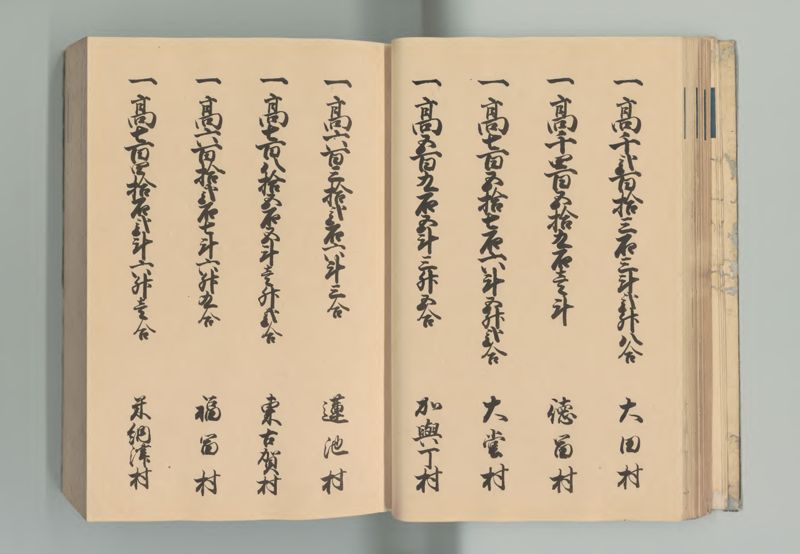 一高千弐百拾三石三斗弐升八合 大田村
一高千四百五拾九石壱斗 徳冨村
一高七百五拾七石六斗五升弐合 大堂村
一高五百九石五斗三升五合 加與丁村
一高六百三拾弐石六斗三合 蓮池村
一高七百八拾五石五斗壱升弐合 東古賀村
一高六百拾弐石七斗六升九合 福冨村
一高七百四拾石弐斗六升壱合 米納津村